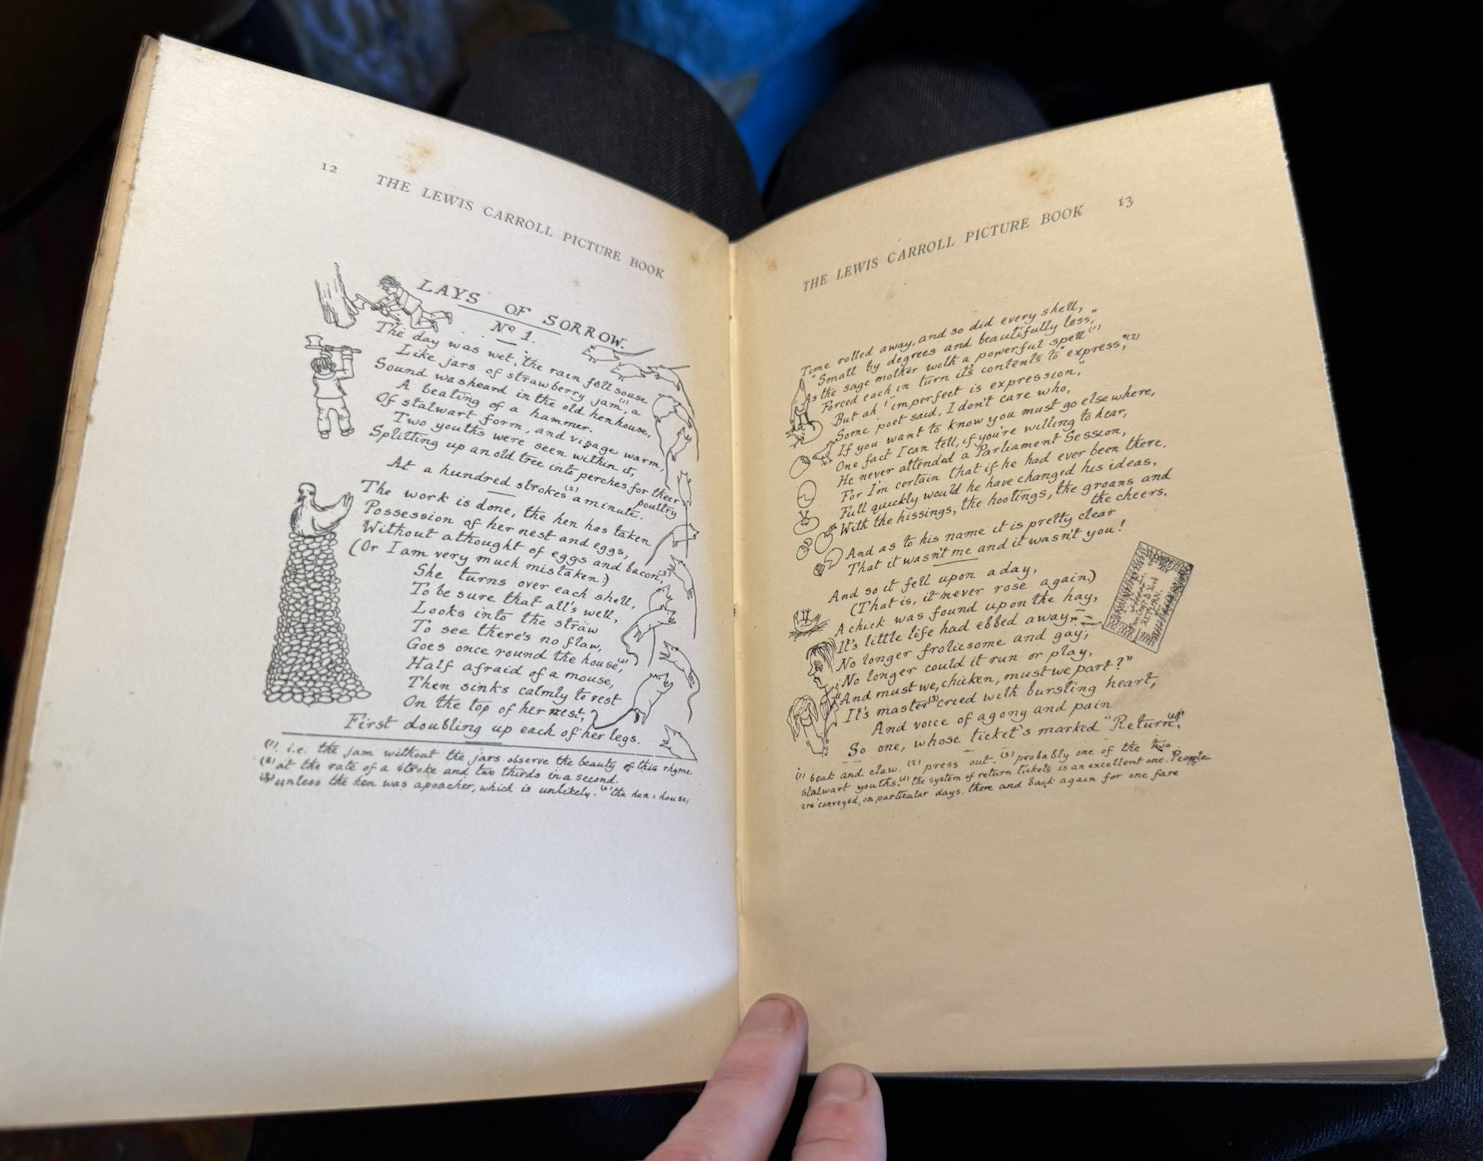 12
THE LEWIS CARROLL PICTURE BOOK
LAYS OF SORROW.
No 1.
The day was wet, the rain fell souse
Like jars of strawberry jam,(1) a
Sound was heard in the old henhouse,
A beating of a hammer.
Of stalwart form, and visage warm,
Two youths were seen within it,
Splitting up an old tree into perches for their
poultry
At a hundred strokes(2) a minute.
The work is done, the hen has taken
Possession of her nest and eggs,
Without a thought of eggs and bacon,(3)
(Or I am very much mistaken:)
She turns over each shell,
To be sure that all's well,
Looks into the straw
To see there's no flaw,
Goes once round the house,(4)
Half afraid of a mouse,
Then sinks calmly to rest
On the top of her nest,
First doubling up each of her legs.
(1). i.e. the jam without the jars observe the beauty of this rhyme
(2) at the rate of a stroke and two thirds in a second.
(3) unless the hen was a poacher, which is unlikely. (4) the hen's house,
THE LEWIS CARROLL PICTURE BOOK
13
Time rolled away, and so did every shell,
"Small by degrees and beautifully less,"
As the sage mother with a powerful spell(1)
Forced each in turn its contents to "express,"(2)
But ah! "imperfect is expression,"
Some poet said, I don't care who,
If you want to know you must go elsewhere,
One fact I can tell, if you're willing to hear,
He never attended a Parliament Session,
For I'm certain that if he had ever been there,
Full quickly would he have changed his ideas,
With the hissings, the hootings, the groans and
the cheers.
And as to his name it is pretty clear
That it wasn't me and it wasn't you!
And so it fell upon a day,
(That is, it never rose again,)
A chick was found upon the hay,
It's little life had ebbed away.
No longer frolicsome and gay,
No longer could it run or play,
"And must we, chicken, must we part?"
It's master(3) cried with bursting heart,
And voice of agony and pain
So one, whose ticket's marked "Return,"(4)
(1) beak and claw. (2) press out. (3) probably one of the two
stalwart youths. (4) the system of return tickets is an excellent one. People
are conveyed, on particular days, there and back again for one fare